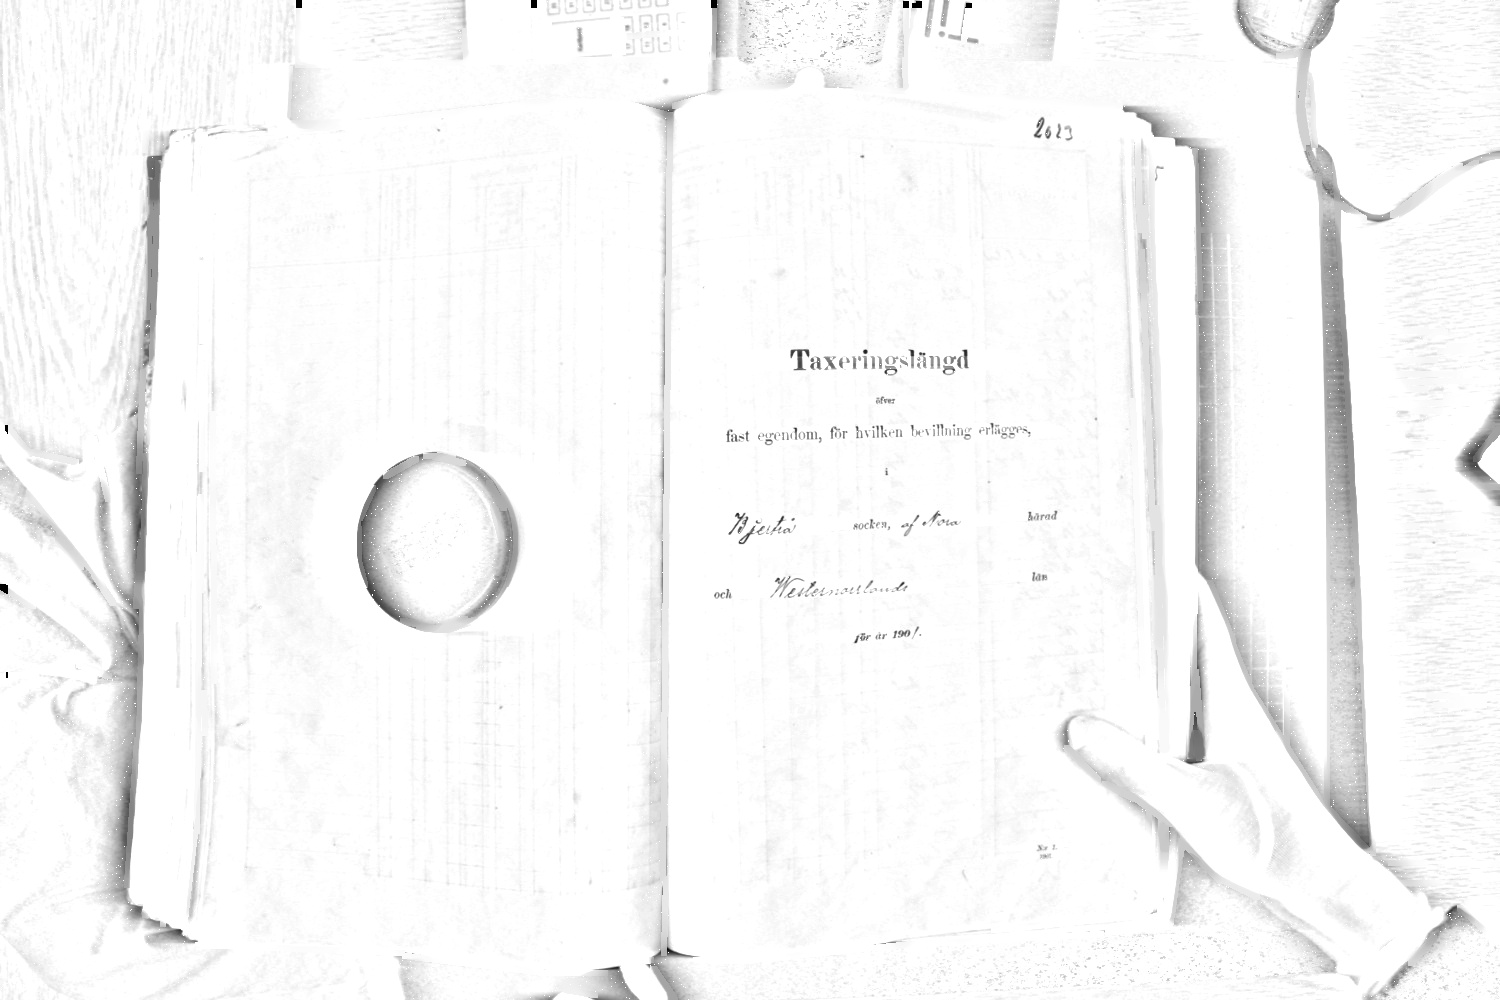 2023
Taxeringslängd
öfver
fast egendom, för hvilken bevillning erlägges,
i
Bjertrå socken, af Nora härad
och Westernorrlands län
för år 1901.
N:r 1.
1901.